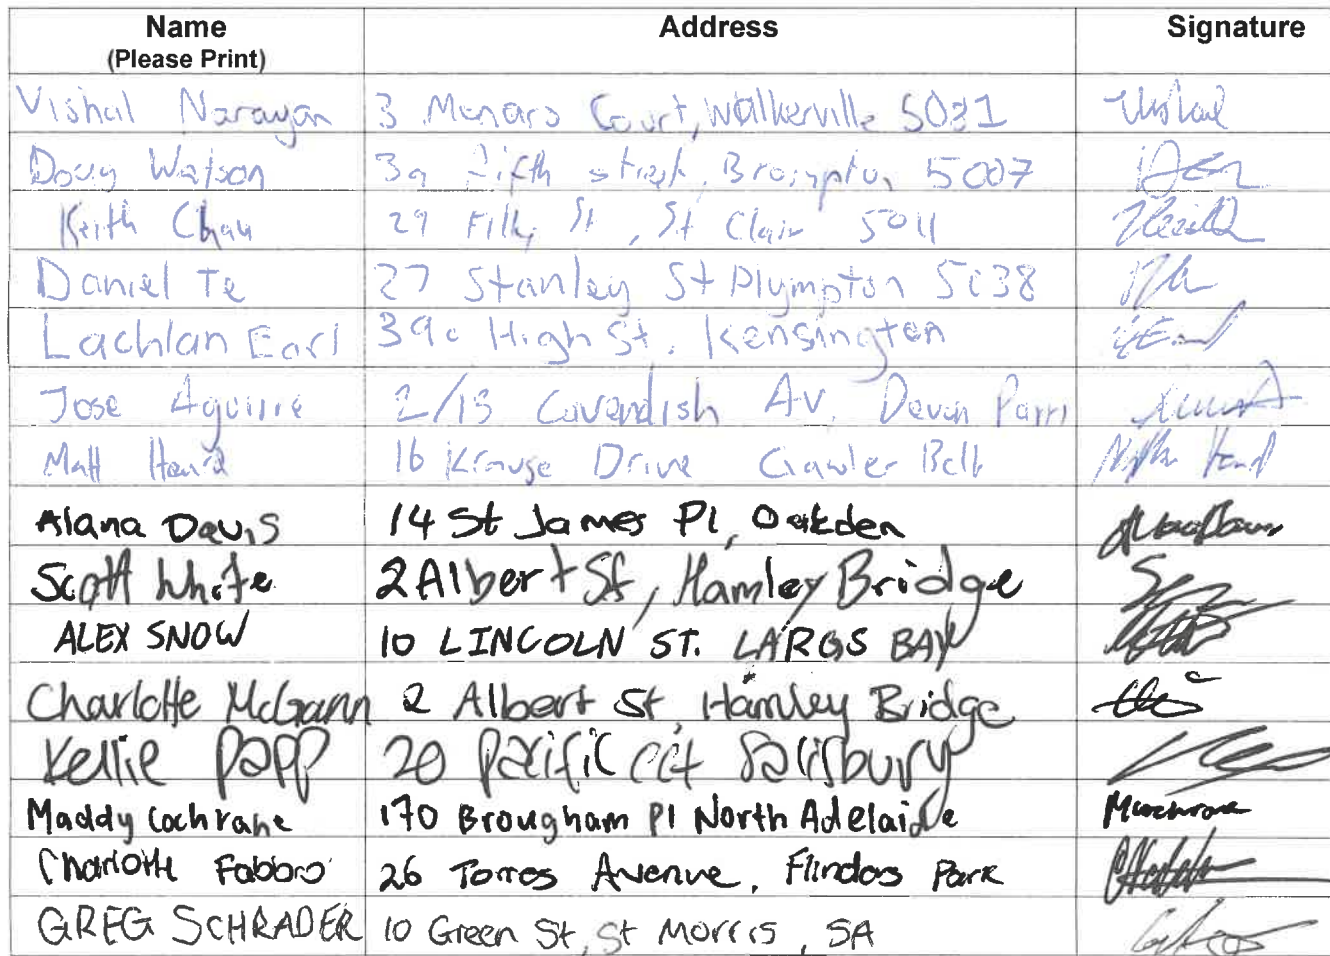 Name Address Signature
(Please Print)
Vishal Narayan 3 Menaro Court, Walkerville 5081 Vishal
Doug Watson 3a Fifth street, Brompton 5007
Keith Chau 29 Filly St, St Clair 5011 Keith
Daniel Te 27 Stanley St Plympton 5038
Lachlan Earl 39c High St. Kensington
Jose Aguirre 2/13 Cavendish Av, Devon Park
Matt 16 Krause Drive Gawler Belt
Alana Davis 14 St James Pl, Oakden
Scott White 2 Albert St, Hamley Bridge
ALEX SNOW 10 LINCOLN ST. LARGS BAY
Charlotte McGann 2 Albert St, Hamley Bridge
Kellie Papp 20 Pacific cct Salisbury
Maddy Cochrane 170 Brougham Pl North Adelaide
Charlotte Fabbro 26 Torres Avenue, Flinders Park
GREG SCHRADER 10 Green St, St Morris, SA